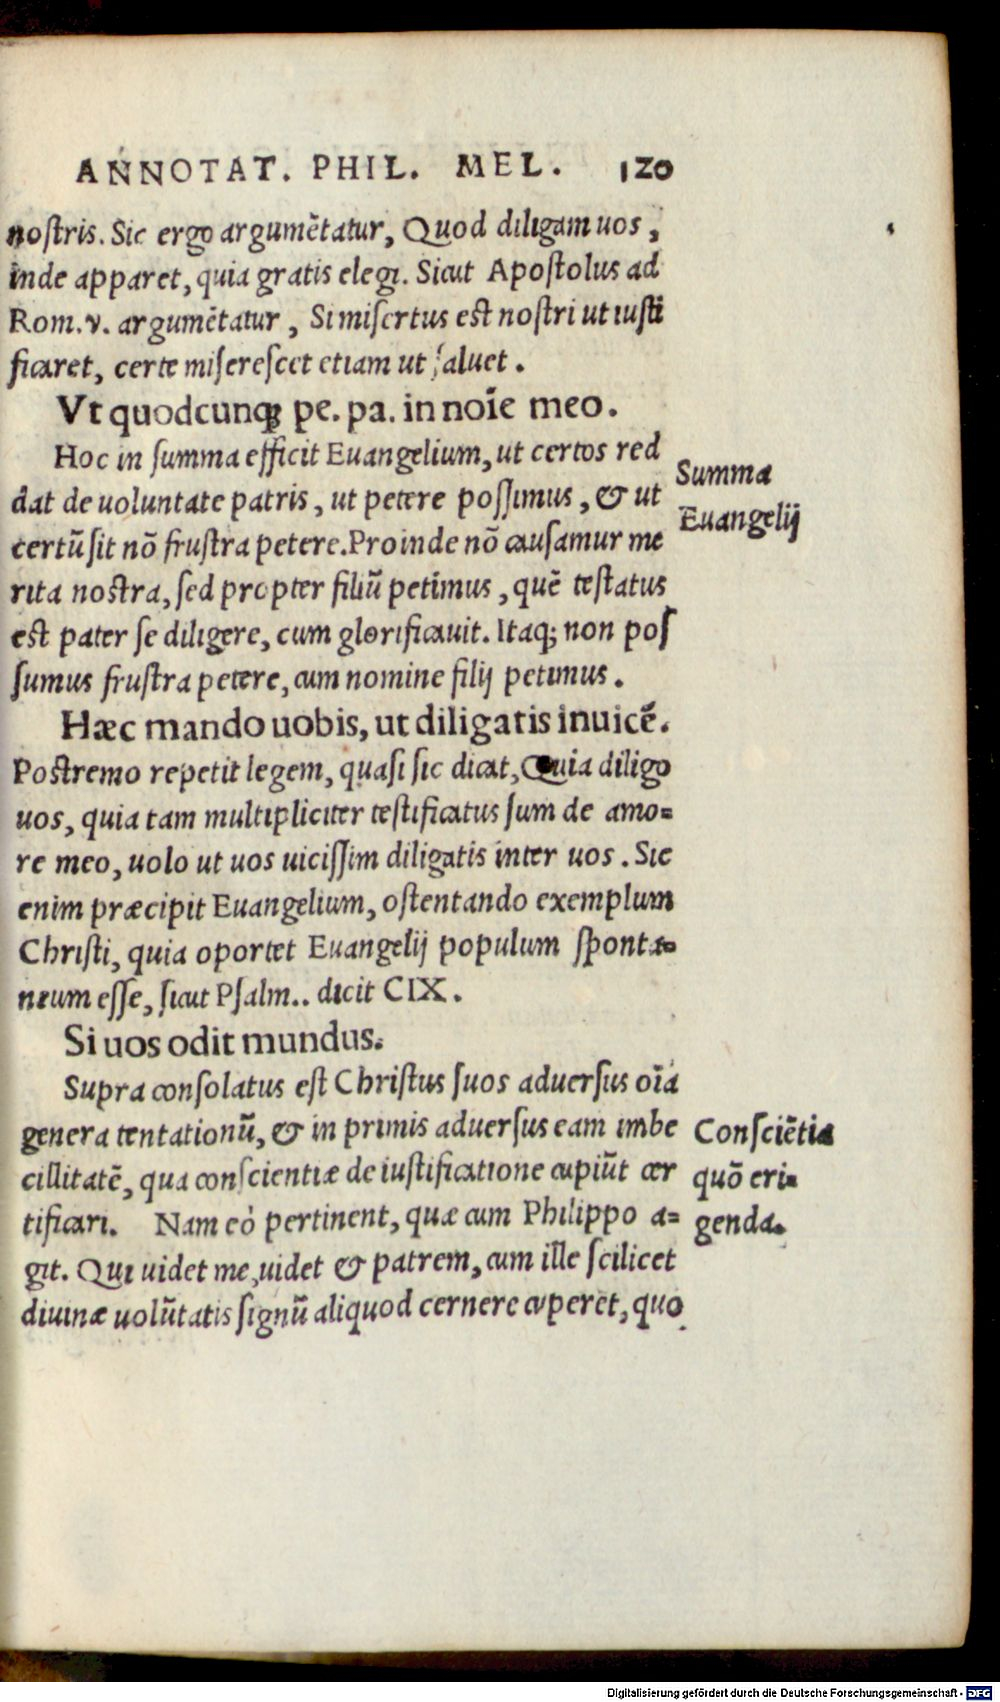 ANNOTAT. PHIL. MEL. 120
noſtris. Sic ergo argumẽtatur, Quod diligam uos,
inde apparet, quia gratis elegi. Sicut Apoſtolus ad
Rom. v. argumẽtatur, Si miſertus eſt noſtri ut iuſti
ficaret, certe miſereſcet etiam ut ſaluet.
Vt quodcunq; pe. pa. in noĩe meo.
Hoc in ſumma efficit Euangelium, ut certos red
dat de uoluntate patris, ut petere poſſimus, & ut
Summa
certũ ſit nõ fruſtra petere. Proinde nõ cauſamur me
Euangelij
rita noſtra, ſed propter filiũ petimus, quẽ teſtatus
eſt pater ſe diligere, cum glorificauit. Itaq; non poſ
ſumus fruſtra petere, cum nomine filij petimus.
Hæc mando uobis, ut diligatis inuicẽ.
Poſtremo repetit legem, quaſi ſic dicat, Quia diligo
uos, quia tam multipliciter teſtificatus ſum de amo=
re meo, uolo ut uos uiciſſim diligatis inter uos. Sic
enim præcipit Euangelium, oſtentando exemplum
Chriſti, quia oportet Euangelij populum ſponta=
neum eſſe, ſicut Pſalm.. dicit CIX.
Si uos odit mundus.
Supra conſolatus eſt Chriſtus ſuos aduerſus oĩa
genera tentationũ, & in primis aduerſus eam imbe
Conſciẽtia
cillitatẽ, qua conſcientiæ de iuſtificatione cupiũt cer
quõ eri=
tificari. Nam eò pertinent, quæ cum Philippo a=
genda.
git. Qui uidet me, uidet & patrem, cum ille ſcilicet
diuinæ uolũtatis ſignũ aliquod cernere cuperet, quo
Digitalisierung gefördert durch die Deutsche Forschungsgemeinschaft - DFG